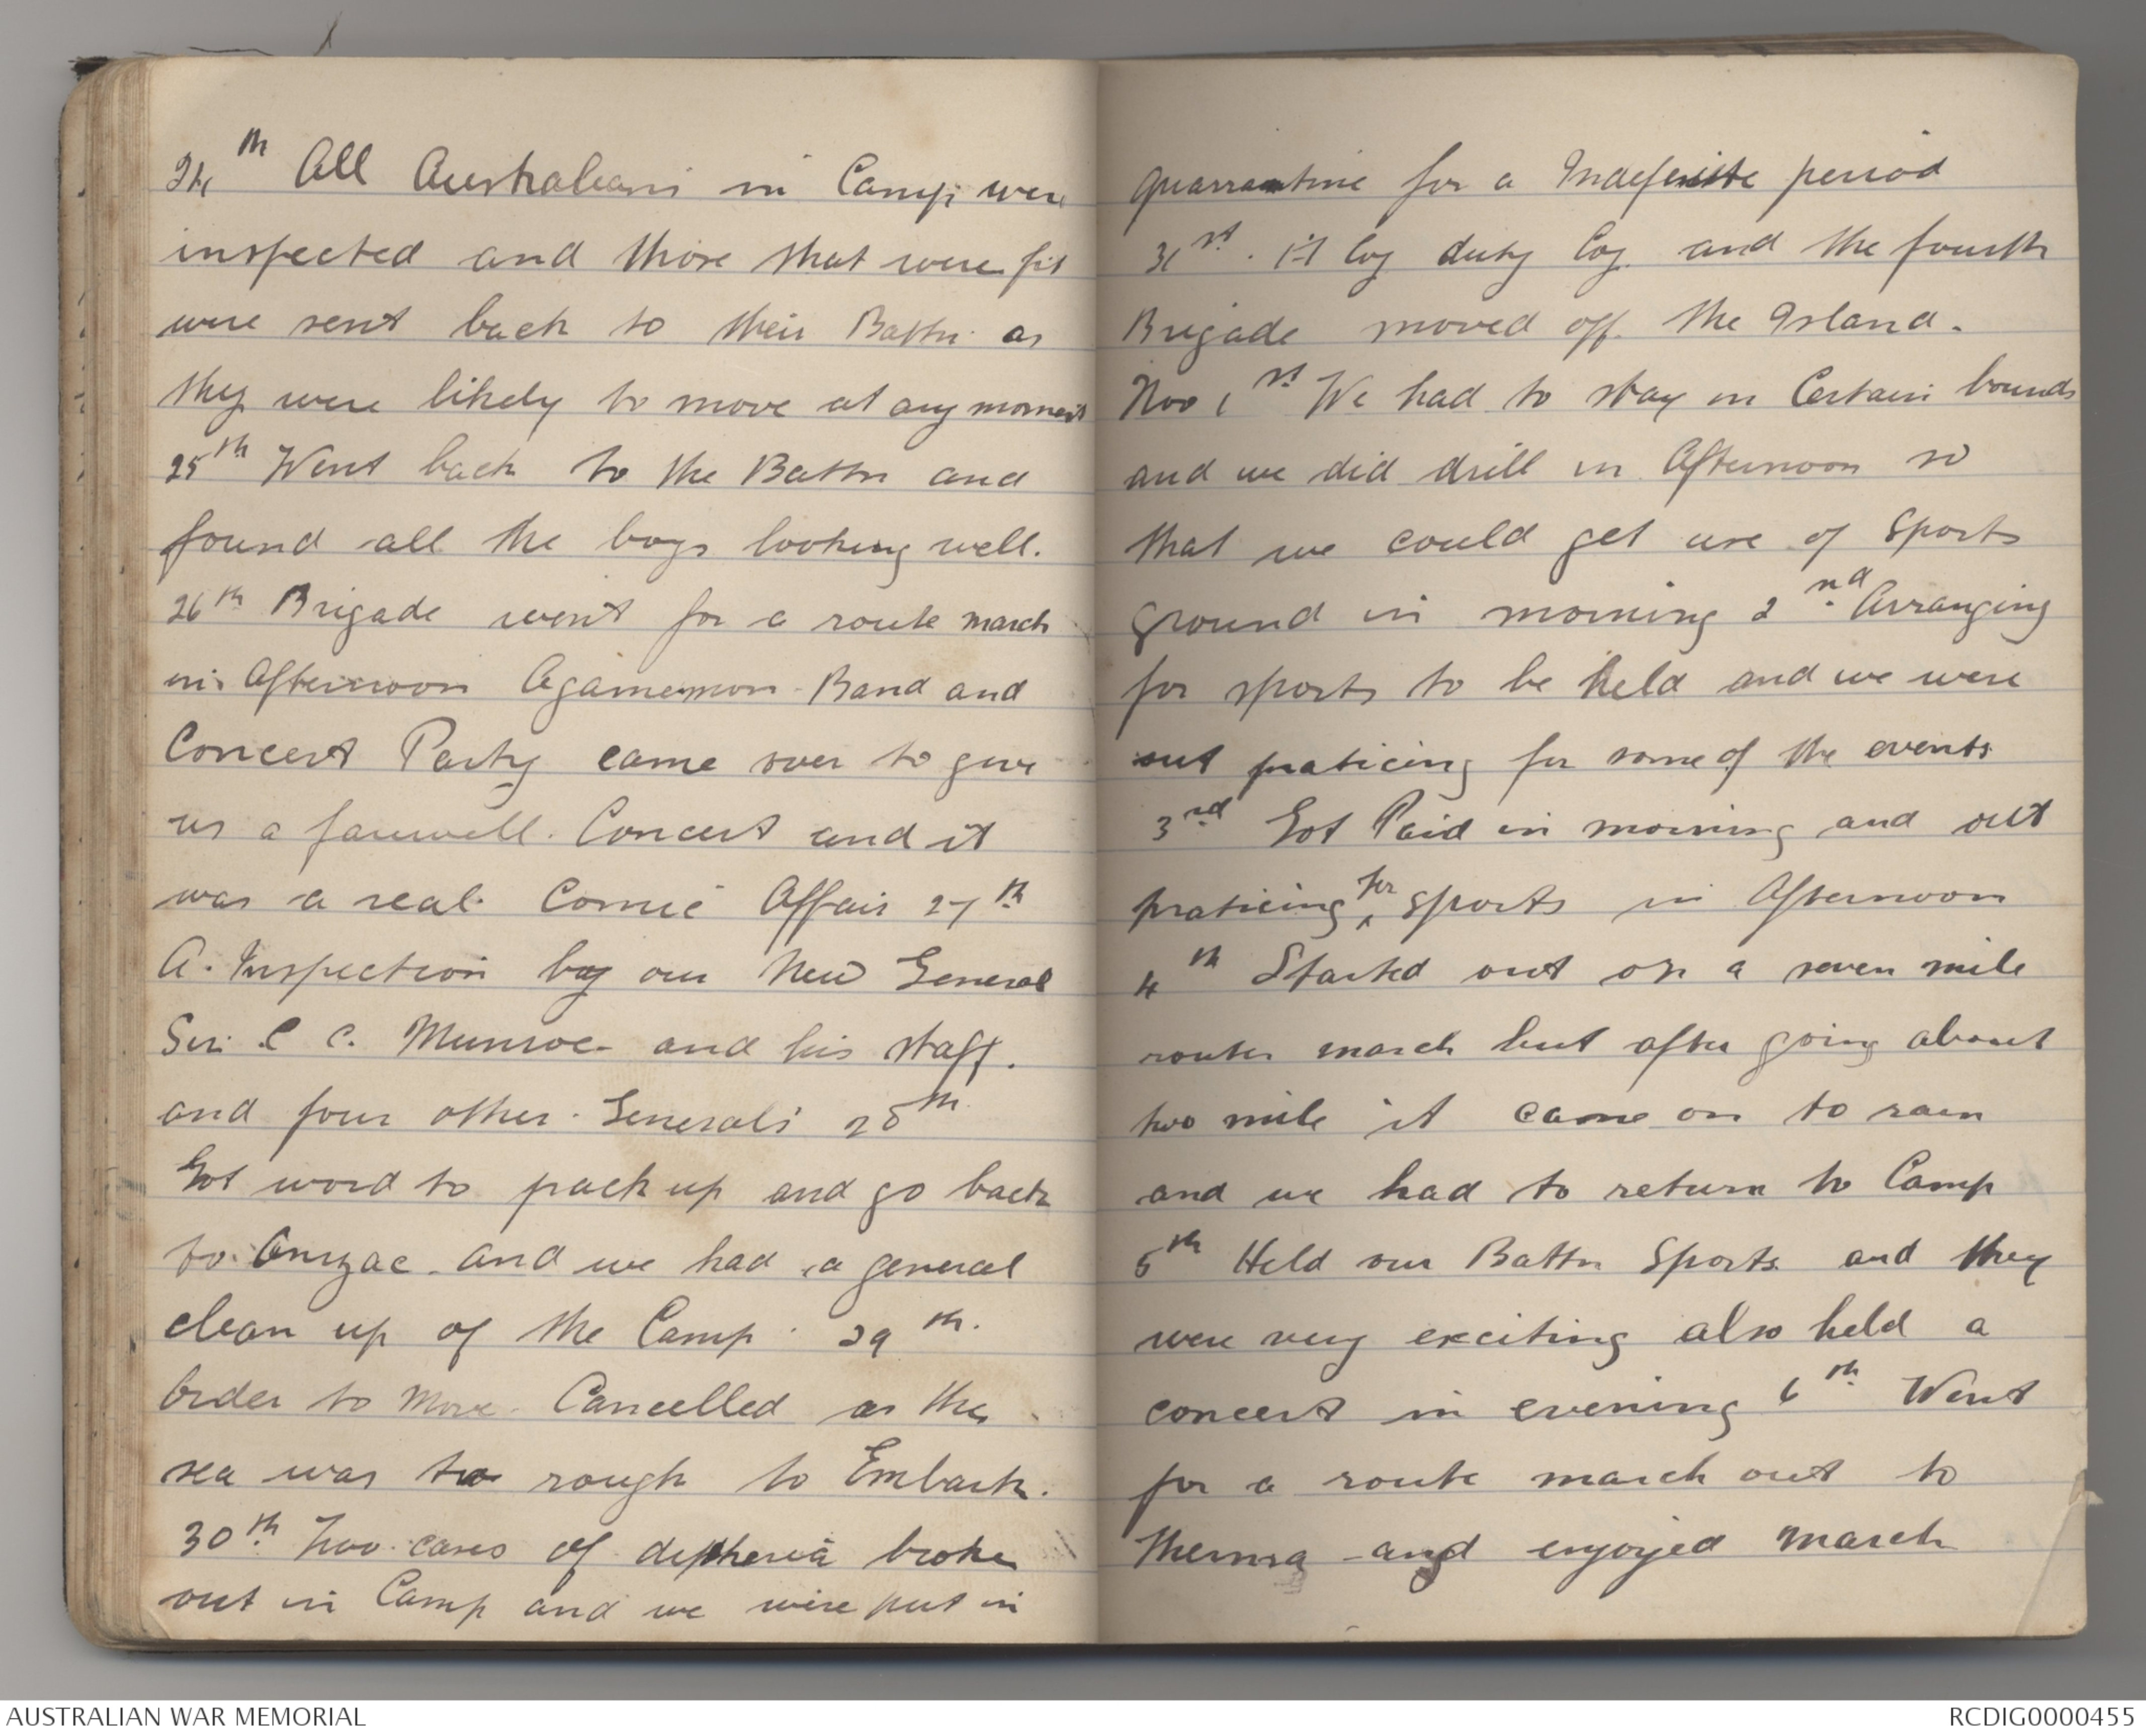 24th All Australians in Camp were
inspected and those that were fit
were sent back to their Battn as
they were likely to move at any moment
25th Went back to the Battn and
found all the boys looking well.
26th Brigade went for a route march
in Afternoon Agamemnon Band and
Concert Party came over to give
us a farewell. Concert and it
was a real Comic Affair 27th
A. Inspection by our New General
Sir. C C. Munroe and his staff.
and four other Generals 28th
Got word to pack up and go back
to Anzac and we had a general
clean up of the Camp. 29th.
Order to Move Cancelled as the
sea was too rough to Embark.
30th Two cases of diptheria broke
out in Camp and we were put in
quarrantine for a Indefinite period
31st. Coy duty Coy. and the fourth
Brigade moved off the Island.
Nov 1st We had to stay in Certain bounds
and we did drill in Afternoon so
that we could get use of sports
ground in morning 2nd Arranging
for sports to be held and we were
out praticing for some of the events
3rd Got Paid in morning and out
praticing for sports in Afternoon
4th Started out on a seven mile
route march but after going about
two mile it came on to rain
and we had to return to Camp
5th Held our Battn Sports and they
were very exciting also held a
concert in evening 6th Went
for a route march out to
Therma and enjoyed march
AUSTRALIAN WAR MEMORIAL
RCDIG0000455